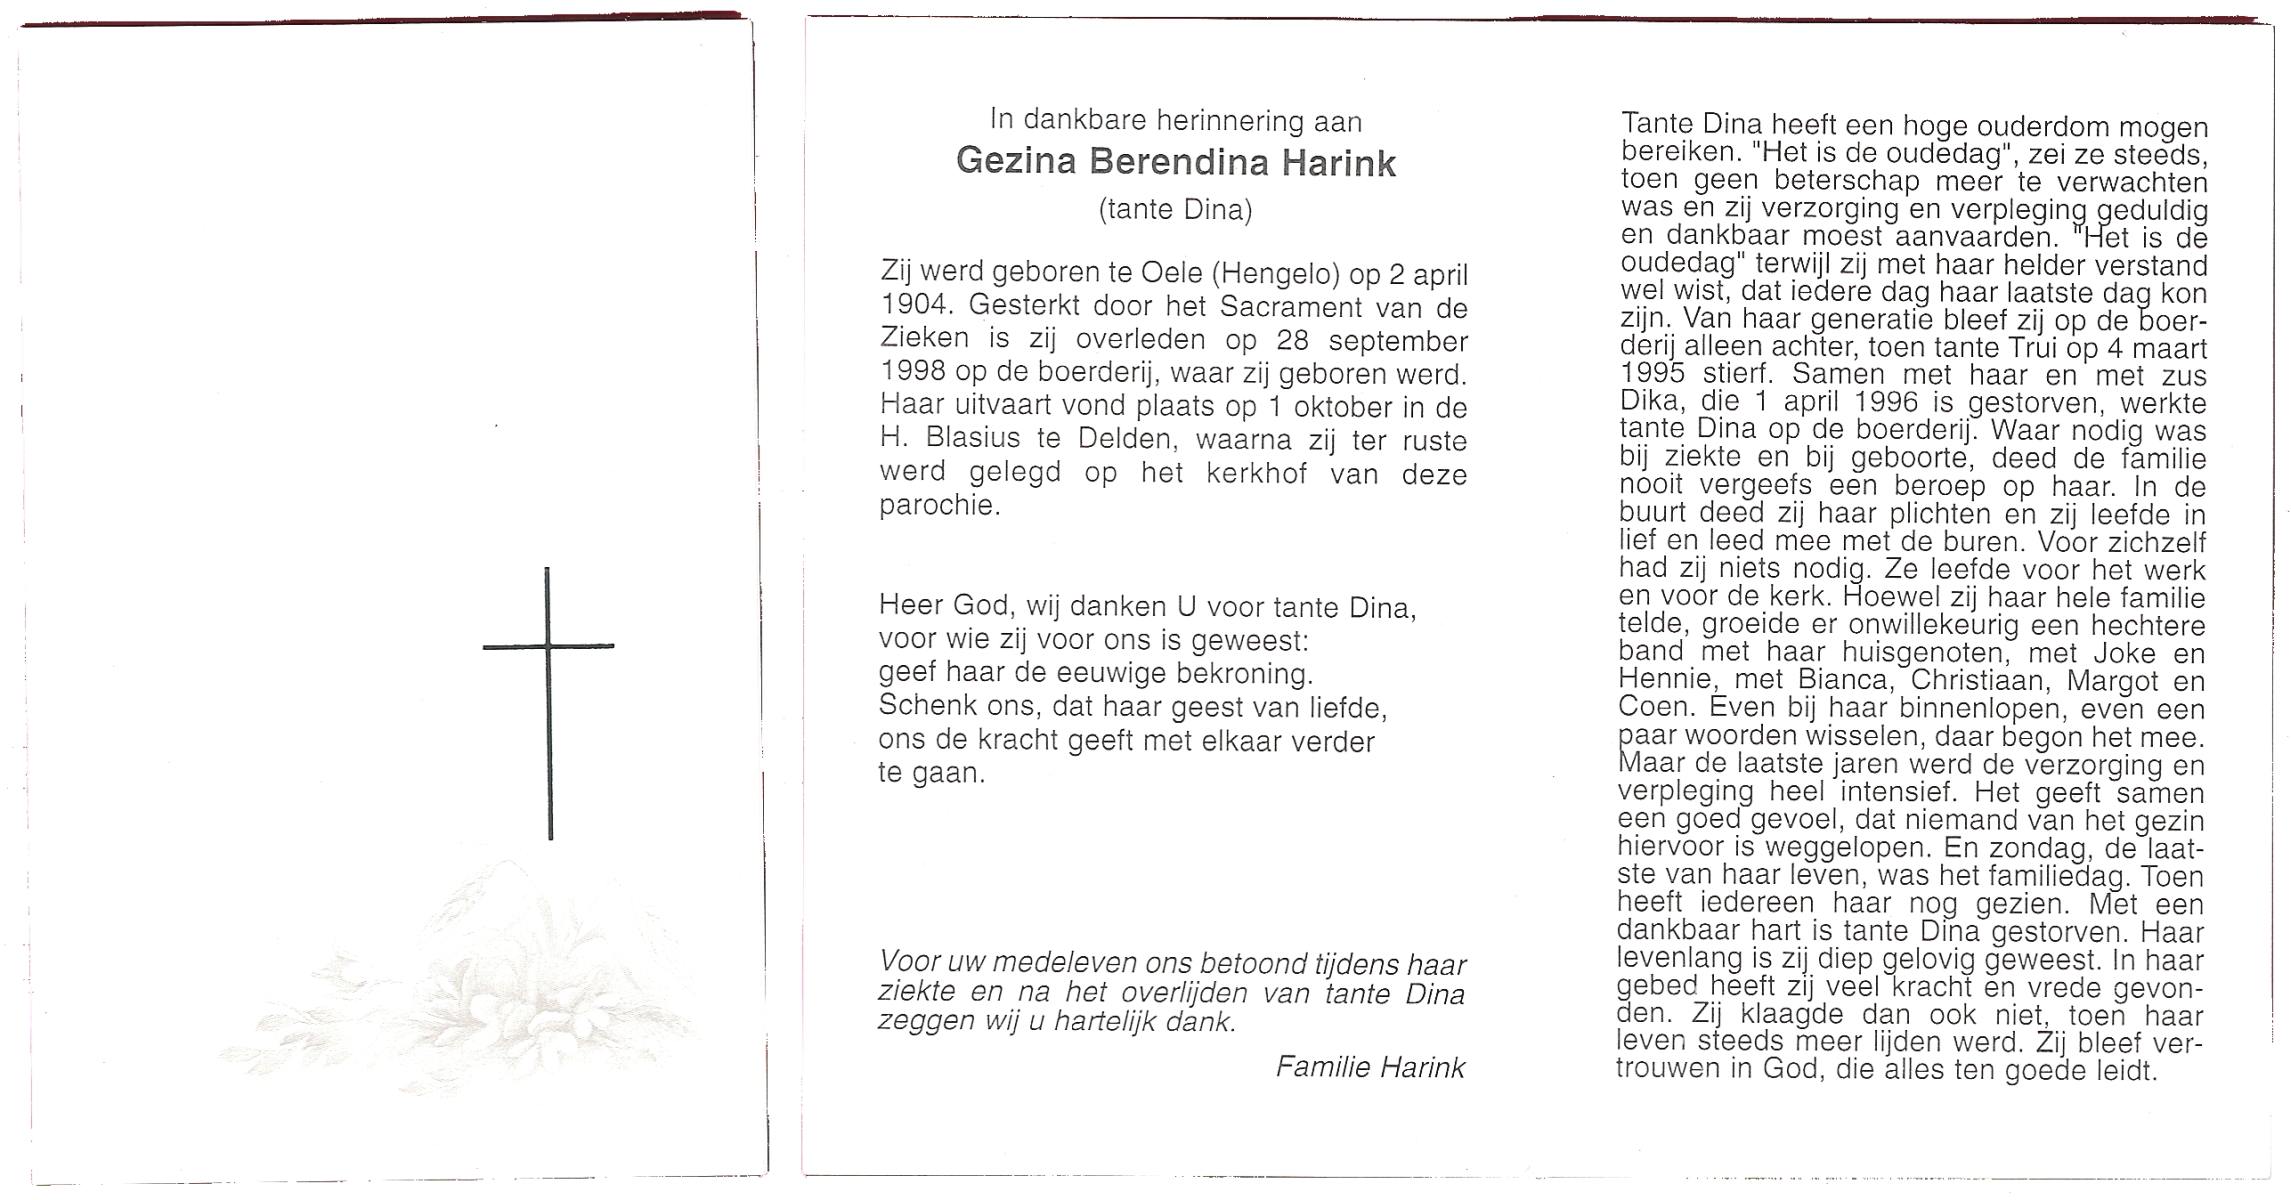 In dankbare herinnering aan
Gezina Berendina Harink
(tante Dina)
Zij werd geboren te Oele (Hengelo) op 2 april
1904. Gesterkt door het Sacrament van de
Zieken is zij overleden op 28 september
1998 op de boerderij, waar zij geboren werd.
Haar uitvaart vond plaats op 1 oktober in de
H. Blasius te Delden, waarna zij ter ruste
werd gelegd op het kerkhof van deze
parochie.
Heer God, wij danken U voor tante Dina,
voor wie zij voor ons is geweest:
geef haar de eeuwige bekroning.
Schenk ons, dat haar geest van liefde,
ons de kracht geeft met elkaar verder
te gaan.
Voor uw medeleven ons betoond tijdens haar
ziekte en na het overlijden van tante Dina
zeggen wij u hartelijk dank.
Familie Harink
Tante Dina heeft een hoge ouderdom mogen
bereiken. "Het is de oudedag", zei ze steeds,
toen geen beterschap meer te verwachten
was en zij verzorging en verpleging geduldig
en dankbaar moest aanvaarden. "Het is de
oudedag" terwijl zij met haar helder verstand
wel wist, dat iedere dag haar laatste dag kon
zijn. Van haar generatie bleef zij op de boer-
derij alleen achter, toen tante Trui op 4 maart
1995 stierf. Samen met haar en met zus
Dika, die 1 april 1996 is gestorven, werkte
tante Dina op de boerderij. Waar nodig was
bij ziekte en bij geboorte, deed de familie
nooit vergeefs een beroep op haar. In de
buurt deed zij haar plichten en zij leefde in
lief en leed mee met de buren. Voor zichzelf
had zij niets nodig. Ze leefde voor het werk
en voor de kerk. Hoewel zij haar hele familie
telde, groeide er onwillekeurig een hechtere
band met haar huisgenoten, met Joke en
Hennie, met Bianca, Christiaan, Margot en
Coen. Even bij haar binnenlopen, even een
paar woorden wisselen, daar begon het mee.
Maar de laatste jaren werd de verzorging en
verpleging heel intensief. Het geeft samen
een goed gevoel, dat niemand van het gezin
hiervoor is weggelopen. En zondag, de laat-
ste van haar leven, was het familiedag. Toen
heeft iedereen haar nog gezien. Met een
dankbaar hart is tante Dina gestorven. Haar
levenlang is zij diep gelovig geweest. In haar
gebed heeft zij veel kracht en vrede gevon-
den. Zij klaagde dan ook niet, toen haar
leven steeds meer lijden werd. Zij bleef ver-
trouwen in God, die alles ten goede leidt.